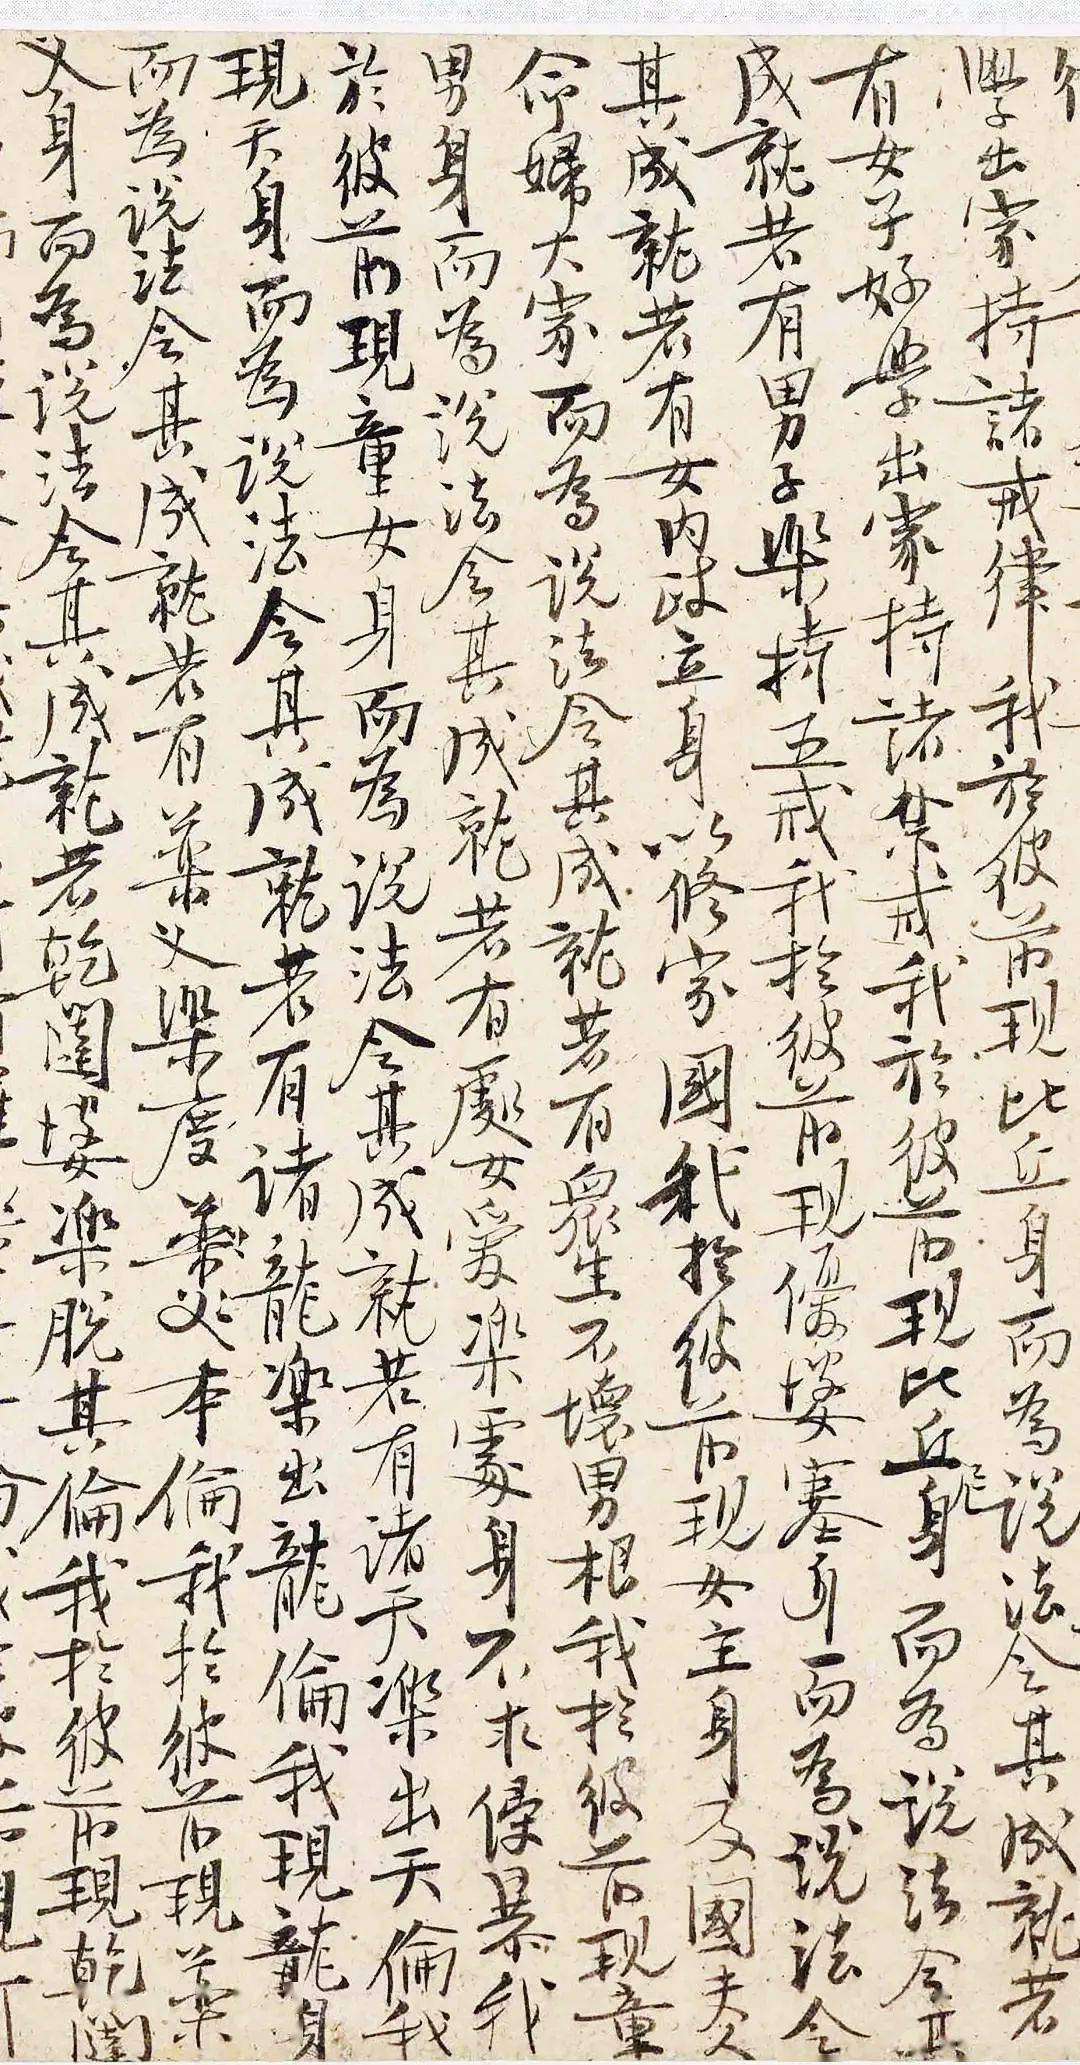 學出家持諸戒律我於彼前現比丘身而為說法令其成就若
有女子好學出家持諸禁戒我於彼前現比丘尼身而為說法令其
成就若有男子樂持五戒我於彼前現優婆塞身而為說法令
其成就若有女內政立身以修家國我於彼前現女主身及國夫人
命婦大家而為說法令其成就若有眾生不壞男根我於彼前現童
男身而為說法令其成就若有處女愛樂處身不求侵暴我
於彼前現童女身而為說法令其成就若有諸天樂出天倫我
現天身而為說法令其成就若有諸龍樂出龍倫我現龍身
而為說法令其成就若有藥叉樂度本倫我於彼前現藥
叉身而為說法令其成就若乾闥婆樂脫其倫我於彼前現乾闥